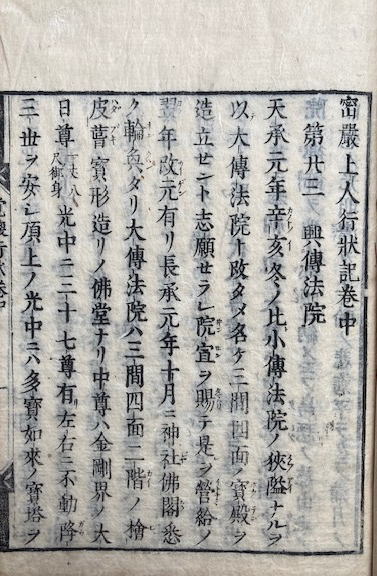 宻嚴上人行狀記卷中
第廿三 興傳法院
天承元年辛亥冬ノ比小傳法院ノ狹隘ナルヲ
以大傳法院ト改タメ名ケ三間四面ノ寶殿ヲ
造立セント志願セラレ院宣ヲ賜テ是ヲ營給フ
翌年改元有リ長承元年十月ニ神社佛閣悉
ク輪奐タリ大傳法院ハ三間四面二階ノ檜
皮葺寶形造リノ佛堂ナリ中尊ハ金剛界ノ大
日尊一丈八尺御身光中ニ三十七尊有左右ニ不動降
三世ヲ安シ頂上ノ光中ニハ多寶如來ノ寶塔ヲ